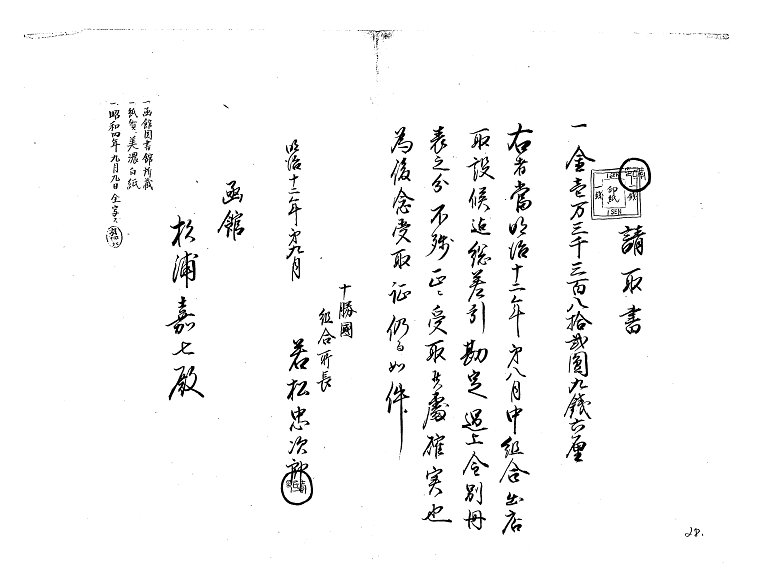 請取書
印紙
一銭
1SEN
一金壱万三千三百八拾弐圓九銭六厘
右者當明治十二年第八月中組合出店
取設候迠総差引勘定過上金別冊
表之分不残正ニ受取候處確実也
為後念受取証仍而如件
明治十二年第九月
十勝國
組合所長
若松忠次郎
函館
杦浦嘉七殿
一函館図書館所蔵
一紙質美濃白紙
一昭和四年九月九日全写ス
28.